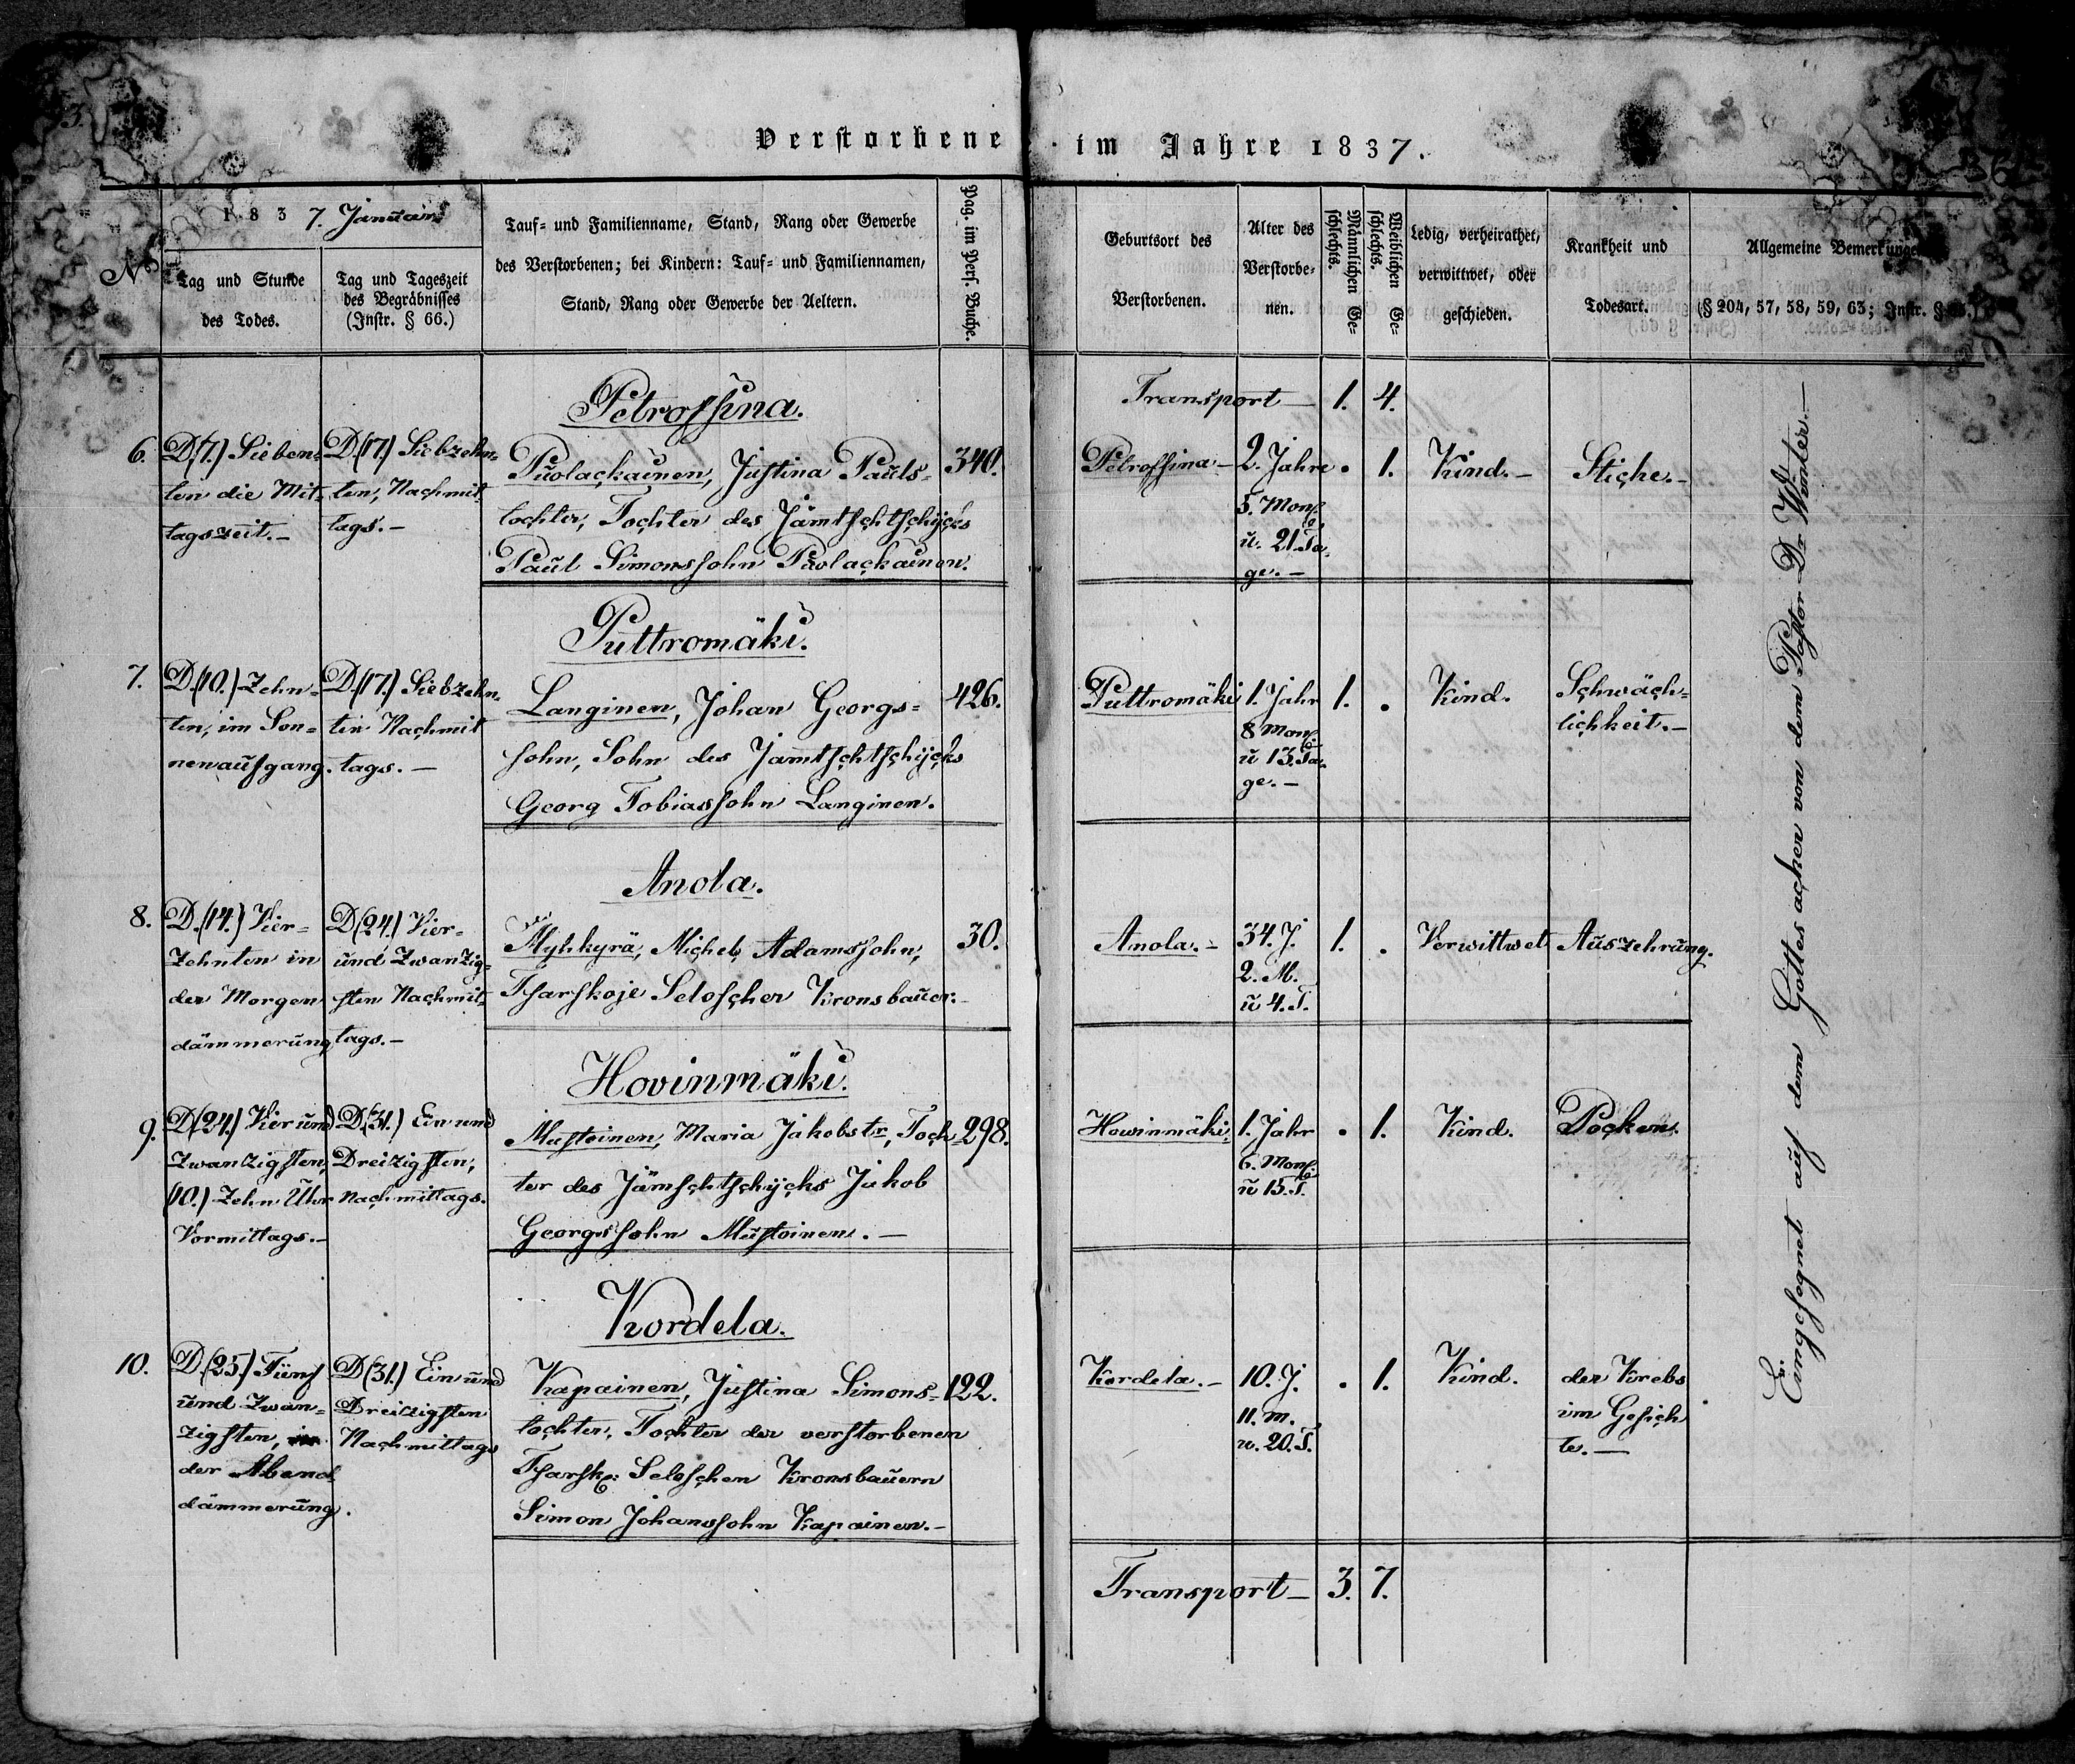 Verstorbene im Jahre 1837.
No
1837. Januar
Tag und Stunde
des Todes.
Tag und Tageszeit
des Begräbnisses
(Instr. § 66.)
Tauf- und Familienname, Stand, Rang oder Gewerbe
des Verstorbenen; bei Kindern: Tauf- und Familiennamen,
Stand, Rang oder Gewerbe der Aeltern.
Pag. im Pers. Buche.
Geburtsort des
Verstorbenen.
Alter des
Verstorbe-
nen.
Männlichen Ge-
schlechts.
Weiblichen Ge-
schlechts.
Ledig, verheirathet,
verwittwet, oder
geschieden.
Krankheit und
Todesart.
Allgemeine Bemerkungen
(§ 204, 57, 58, 59, 63; Instr. §
Petrossina.
Transport — 1. 4.
6.
D.(7.) Sieben-
ten die Mit-
tagszeit. —
D.(17.) Siebzehn-
ten, Nachmit-
tags. —
Puolackainen, Justina Pauls-
tochter, Tochter des Jämtschtschijcks
Paul Simonssohn Puolackainen.
340.
Petrossina —
2. Jahre
5. Mon.
u. 21. Ta-
ge. —
. 1.
Kind. —
Stiche. —
Puttromäki.
7.
D.(10.) Zehn-
ten, im Son-
nenaufgang.
D.(17.) Siebzehn-
ten Nachmit
tags. —
Langinen, Johan Georgs-
sohn, Sohn des Jamtschtschijcks
Georg Tobiassohn Langinen.
426.
Puttromäki
1. Jahr
8 Mon.
u 13. Ta-
ge. —
1. .
Kind.
Schwäch-
lichkeit. —
Anola.
8.
D.(14.) Vier-
zehnten in
der Morgen
dämmerung
D(24.) Vier-
und Zwanzig-
sten Nachmit-
tags. —
Myhkyrä, Michel, Adamssohn,
Tsarskoje Seloscher Kronsbauer.
30.
Anola. —
34. J.
2. M.
u 4. T.
1. .
Verwittwet
Auszehrung.
Hovinmäki.
9.
D(24.) Vier und
Zwanzigsten,
(10.) Zehn Uhr
Vormittags. —
D.(31.) Ein und
Dreizigsten,
Nachmittags.
Mustoinen, Maria Jakobstr, Toch
ter des Jämschtschijcks Jakob
Georgssohn Mustoinen. —
298.
Howinmäki,
1. Jahr
6. Mon.
u 15. T.
. 1.
Kind.
Pocken.
Kordela.
10.
D.(25.) Fünf
und Zwan-
zigsten,
der Abend
dämmerung.
D(31.) Ein und
Dreizigsten
Nachmittags
Kapainen, Justina Simons-
tochter, Tochter der verstorbenen
Tsarsk: Seloschen Kronsbauern
Simon Johanssohn Kapainen. —
122.
Kordela. —
10. J.
11. m.
u. 20. T.
. 1.
Kind.
der Krebs
im Gesich
te. —
Transport — 3. 7.
Eingesegnet auf dem Gottesacker von dem Pastor Dr Wanter. —